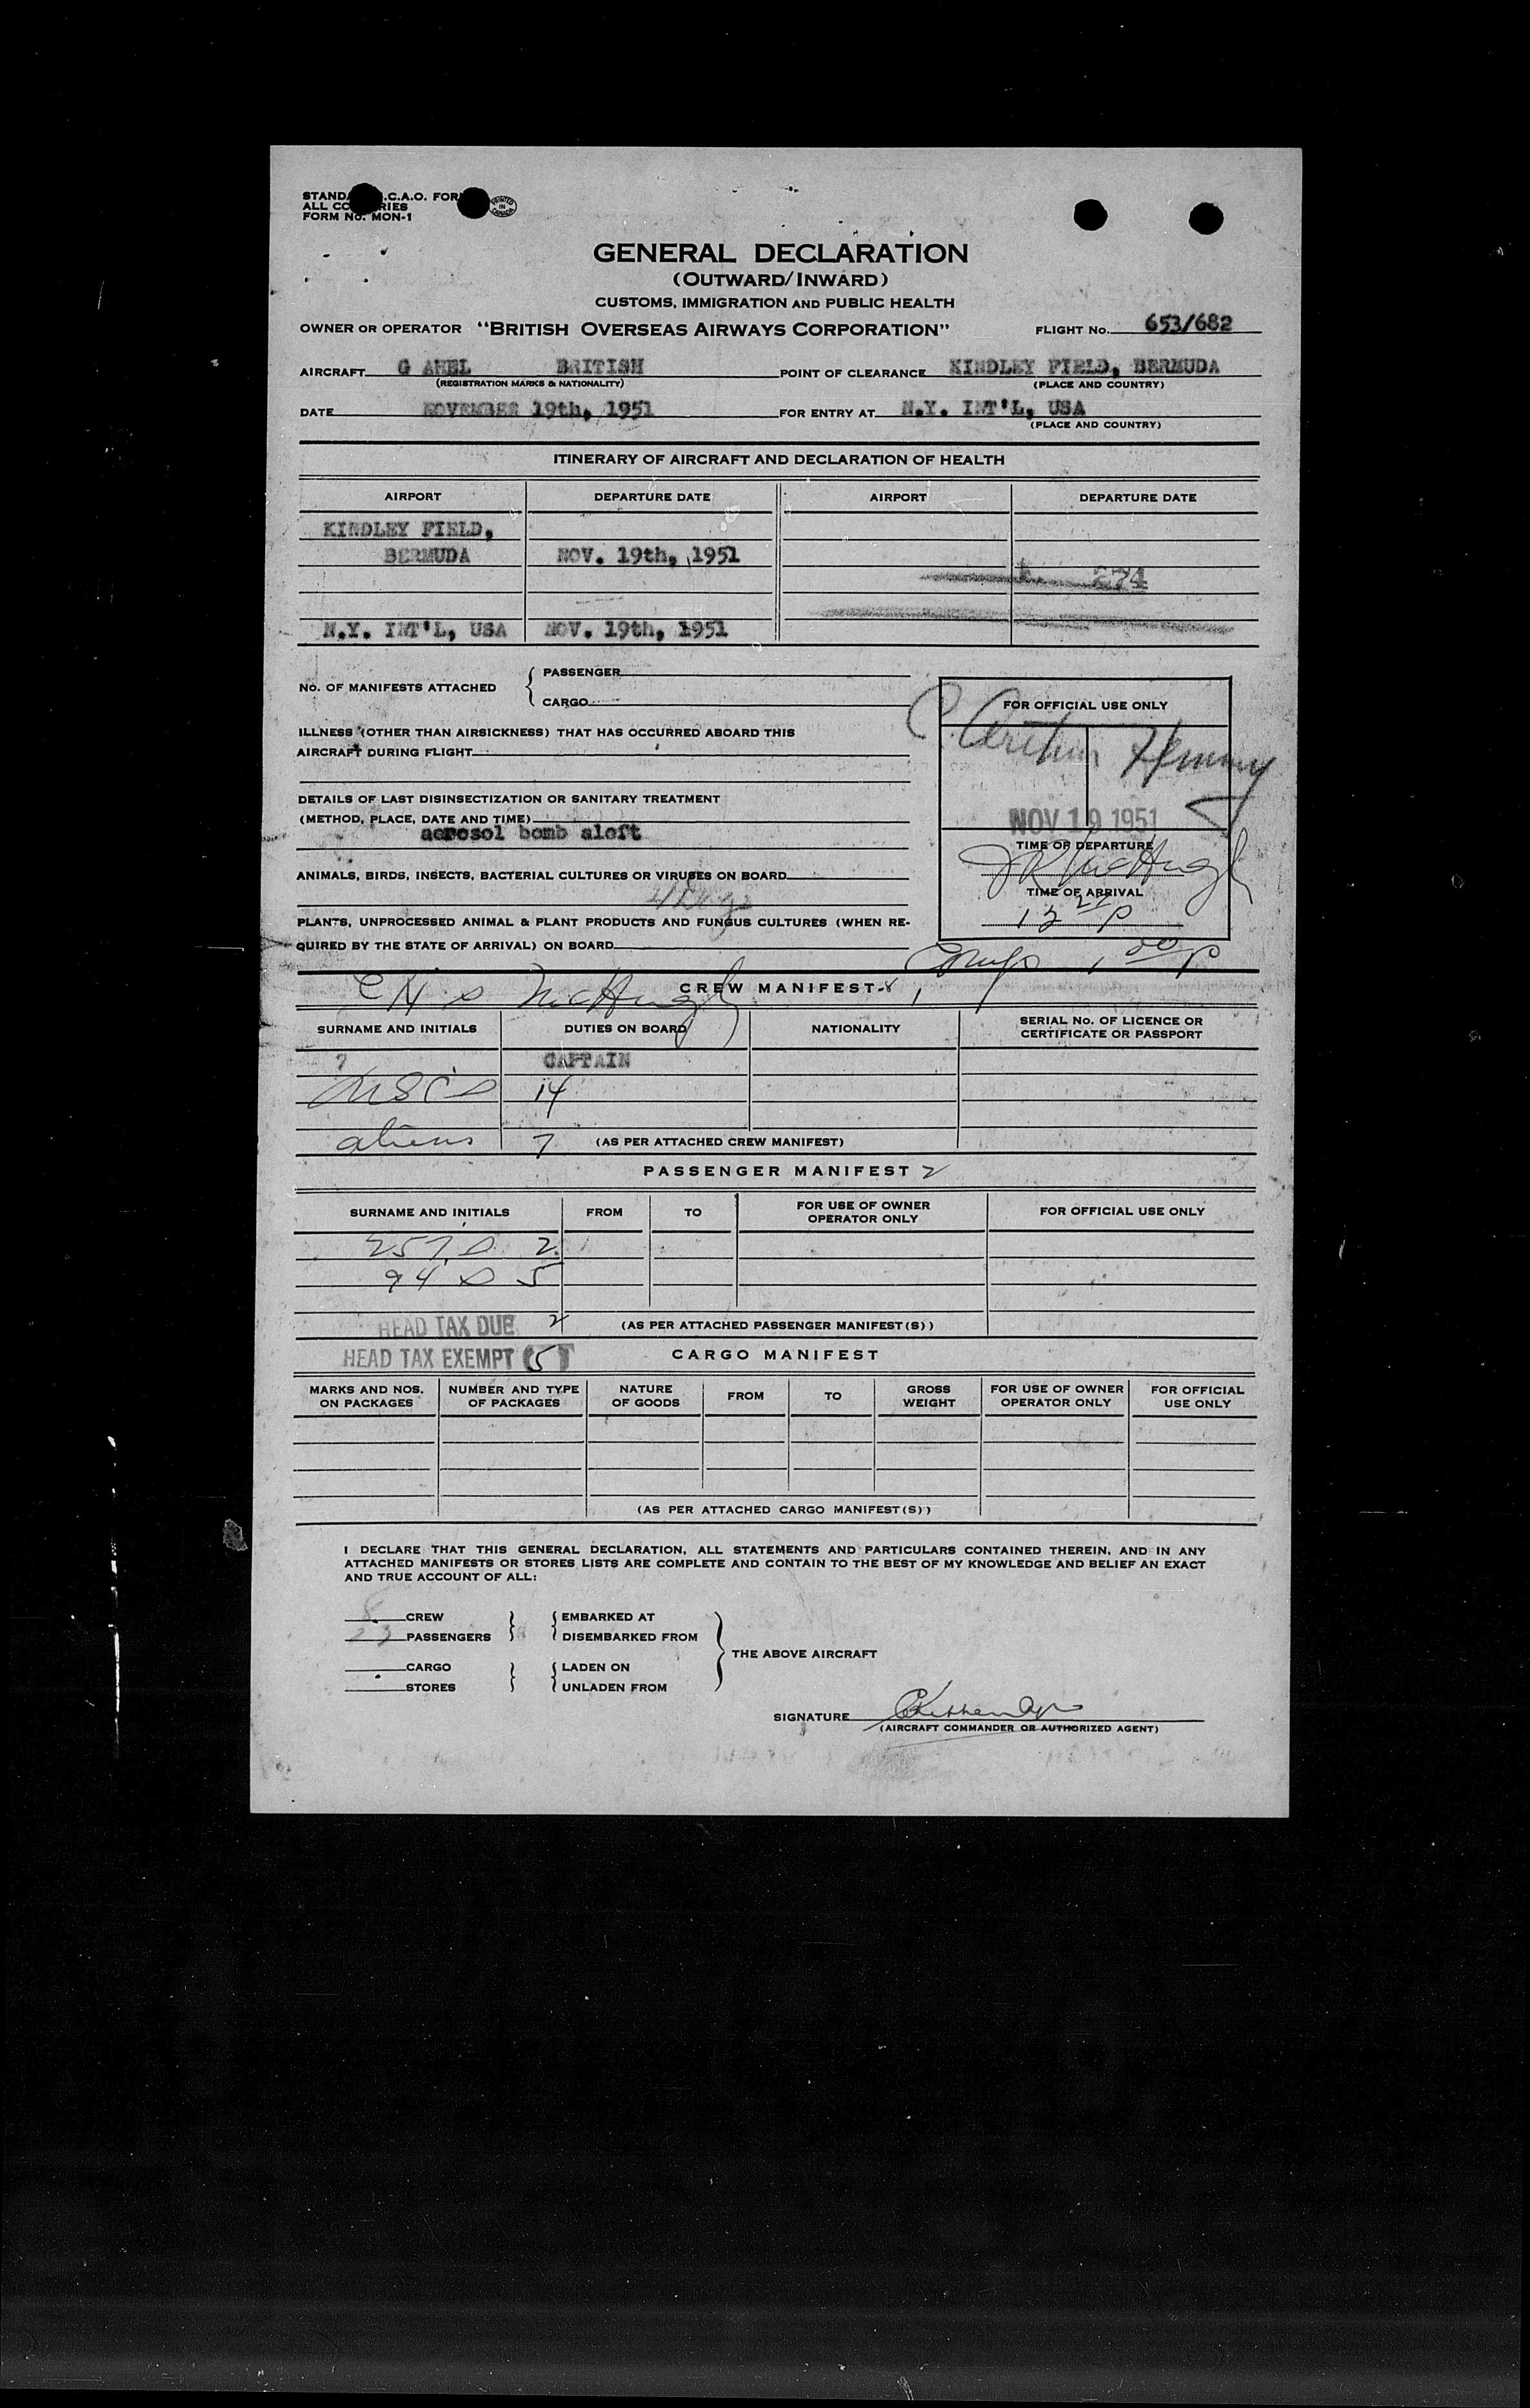 STANDA .C.A.O. FOR
ALL CO RIES
FORM NO. MON-1
PRINTED IN CANADA
GENERAL DECLARATION
(OUTWARD/INWARD)
CUSTOMS, IMMIGRATION AND PUBLIC HEALTH
OWNER OR OPERATOR "BRITISH OVERSEAS AIRWAYS CORPORATION" FLIGHT NO. 653/682
AIRCRAFT G BRITISH POINT OF CLEARANCE KINDLEY FIELD, BERMUDA
(REGISTRATION MARKS & NATIONALITY) (PLACE AND COUNTRY)
DATE NOVEMBER 19th, 1951 FOR ENTRY AT N.Y. INT'L, USA
(PLACE AND COUNTRY)
ITINERARY OF AIRCRAFT AND DECLARATION OF HEALTH
AIRPORT DEPARTURE DATE AIRPORT DEPARTURE DATE
KINDLEY FIELD,
BERMUDA NOV. 19th, 1951
274
N.Y. INT'L, USA NOV. 19th, 1951
NO. OF MANIFESTS ATTACHED { PASSENGER
CARGO
FOR OFFICIAL USE ONLY
ILLNESS (OTHER THAN AIRSICKNESS) THAT HAS OCCURRED ABOARD THIS
AIRCRAFT DURING FLIGHT
DETAILS OF LAST DISINSECTIZATION OR SANITARY TREATMENT
(METHOD, PLACE, DATE AND TIME)
aerosol bomb aloft
NOV 19 1951
TIME OF DEPARTURE
ANIMALS, BIRDS, INSECTS, BACTERIAL CULTURES OR VIRUSES ON BOARD
TIME OF ARRIVAL
PLANTS, UNPROCESSED ANIMAL & PLANT PRODUCTS AND FUNGUS CULTURES (WHEN RE-
QUIRED BY THE STATE OF ARRIVAL) ON BOARD
McHugh
CREW MANIFEST
SURNAME AND INITIALS DUTIES ON BOARD NATIONALITY SERIAL NO. OF LICENCE OR
CERTIFICATE OR PASSPORT
7 CAPTAIN
14
aliens 7 (AS PER ATTACHED CREW MANIFEST)
PASSENGER MANIFEST 2
SURNAME AND INITIALS FROM TO FOR USE OF OWNER
OPERATOR ONLY FOR OFFICIAL USE ONLY
257 2
94 5
HEAD TAX DUE 2 (AS PER ATTACHED PASSENGER MANIFEST(S))
HEAD TAX EXEMPT 5 CARGO MANIFEST
MARKS AND NOS.
ON PACKAGES NUMBER AND TYPE
OF PACKAGES NATURE
OF GOODS FROM TO GROSS
WEIGHT FOR USE OF OWNER
OPERATOR ONLY FOR OFFICIAL
USE ONLY
(AS PER ATTACHED CARGO MANIFEST(S))
I DECLARE THAT THIS GENERAL DECLARATION, ALL STATEMENTS AND PARTICULARS CONTAINED THEREIN, AND IN ANY
ATTACHED MANIFESTS OR STORES LISTS ARE COMPLETE AND CONTAIN TO THE BEST OF MY KNOWLEDGE AND BELIEF AN EXACT
AND TRUE ACCOUNT OF ALL:
8 CREW EMBARKED AT
23 PASSENGERS DISEMBARKED FROM
THE ABOVE AIRCRAFT
CARGO LADEN ON
STORES UNLADEN FROM
SIGNATURE
(AIRCRAFT COMMANDER OR AUTHORIZED AGENT)